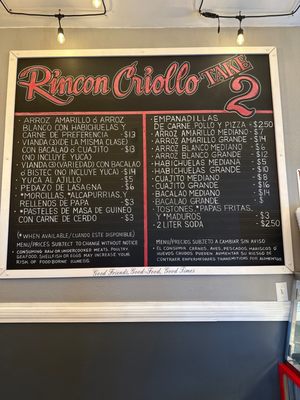 Rincon Criollo TAKE 2
- ARROZ AMARILLO Ó ARROZ
BLANCO CON HABICHUELAS Y
CARNE DE PREFERENCIA -$13
- VIANDA(3)(DE LA MISMA CLASE)
CON BACALAO Ó CUAJITO -$13
(NO INCLUYE YUCA)
- VIANDA(3)(VARIEDAD) CON BACALAO
Ó BISTEC (NO INCLUYE YUCA) -$14
- YUCA AL AJILLO -$5
- PEDAZO DE LASAGNA -$6
- *MORCILLAS, *ALCAPURRIAS, Y
RELLENOS DE PAPA -$3
- *PASTELES DE MASA DE GUINEO
CON CARNE DE CERDO -$3
(*WHEN AVAILABLE/CUANDO ESTE DISPONIBLE)
MENU/PRICES SUBJECT TO CHANGE WITHOUT NOTICE
- CONSUMING RAW OR UNDERCOOKED MEATS, POULTRY
SEAFOOD, SHELLFISH OR EGGS MAY INCREASE YOUR
RISK OF FOOD-BORNE ILLNESS.
- EMPANADILLAS
DE CARNE POLLO Y PIZZA -$2.50
- ARROZ AMARILLO MEDIANO -$7
- ARROZ AMARILLO GRANDE -$14
- ARROZ BLANCO MEDIANO -$6
- ARROZ BLANCO GRANDE -$12
- HABICHUELAS MEDIANA -$5
- HABICHUELAS GRANDE -$10
- CUAJITO MEDIANO -$8
- CUAJITO GRANDE -$16
- BACALAO MEDIANO -$14
- BACALAO GRANDE -$
- TOSTONES, *PAPAS FRITAS,
Y *MADUROS -$3
- 2 LITER SODA -$2.50
MENU/PRICES SUBJETO A CAMBIAR SIN AVISO
- EL CONSUMIR CARNES, AVES, PESCADOS, MARISCOS Ó
HUEVOS CRUDOS PUEDEN AUMENTAR SU RIESGO DE
CONTRAER ENFERMEDADES TRANSMITIDAS POR ALIMENTOS
Good Friends, Good Food, Good Times